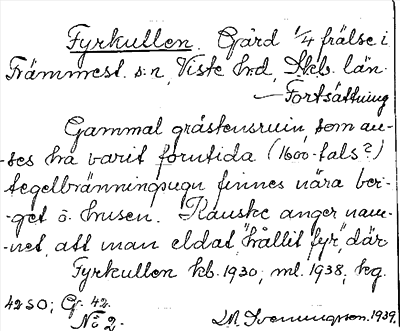 Fyrkullen. Gård 1/4 frälse i
Främmest. s:n, Viste hrd, Skb. län.
— Fortsättning
Gammal gråstensruin, som an-
-ses ha varit forntida (1600-tals?)
tegelbränningsugn finnes nära ber-
-get ö. husen. Kanske anger nam-
-net, att man eldat, "hållit fyr", där
Fyrkullen kb. 1930; ml. 1938, kg.
4230; Gf. 42.
No 2.
1939.